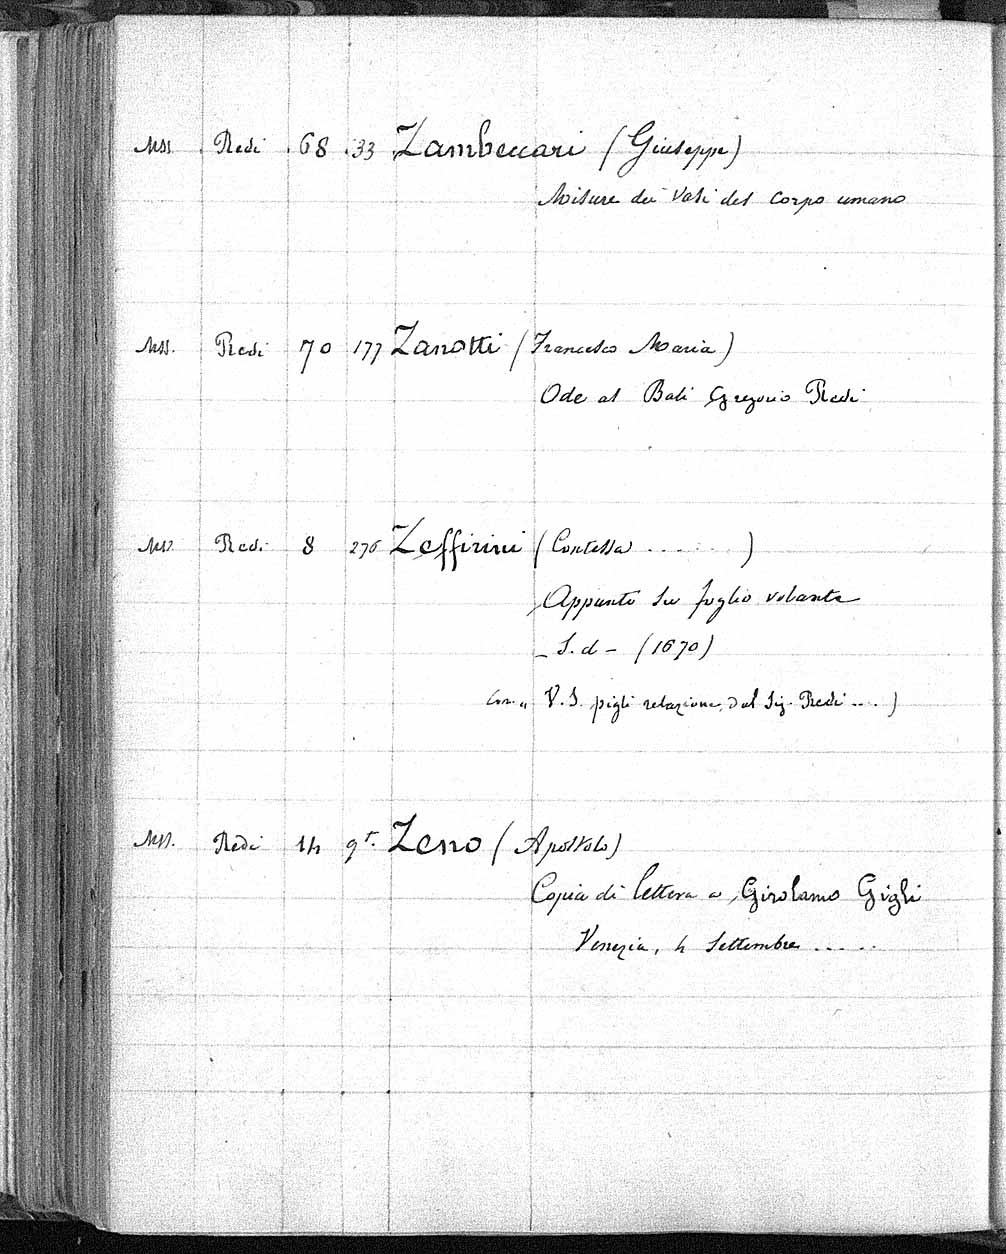 Mss. Redi 68 33 Zambeccari (Giuseppe)
Misure dei Vasi del Corpo umano
Mss. Redi 70 177 Zanotti (Francesco Maria)
Ode al Bali Gregorio Redi
Mss. Redi 8 276 Zeffirini (Contessa . . . . . . )
Appunto su foglio volante
_ S. d - (1670)
V. S. pigli relazione dal Sig. Redi .... )
Mss. Redi 14 9t. Zeno (Apostolo)
Copia di lettera a Girolamo Gigli
Venezia, 4 Settembre . . . . .